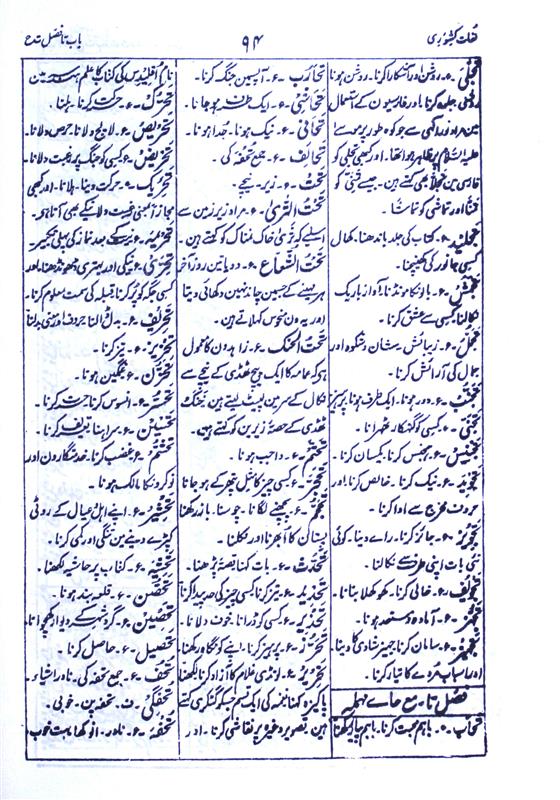 لغات کشوری
۹۴
باب تا فصل تے ح
تجلی - ع - روشن اور آشکارا کرنا - روشن ہونا
روشنی جلوہ کرنا اور فارسیون کے استعمال
مین مراد نور الٰہی سے جو کوہ طور پر موسےٰ
علیہ السلام پر ظاہر ہوا تھا - اور کبھی تجلی کو
فارسی مین تجلا بھی کہتے ہین - جیسے تمنی کو
تمنا اور تماشی کو تماشا -
تجلید - ع - کتاب کی جلد باندھنا - کھال
کسی جانور کی کھینچنا -
باریک
نکالنا کسی سے عشق کرنا -
تجمل - ع - زیبائش - شان و شکوہ اور
جمال کی آرائش کرنا -
تجنب - ع - دور ہونا - ایک طرف ہونا - پرہیز
تجنی - ع - کسی کو گنہگار ٹھہرانا -
تجنیس - ع - ہمجنس کرنا - یکسان کرنا -
تجوید - ع - نیک کرنا - خالص کرنا - اور
حروف مخرج سے ادا کرنا -
تجویز - ع - جائز کرنا - راے دینا - کوئی
نئی بات اپنی طرف سے نکالنا -
تجویف - ع - خالی کرنا - کھوکھلا بنانا -
تجہز - ع - آمادہ و مستعد ہونا -
تجہیز - ع - سامان کرنا - جہیز شادی کا دینا -
اور اسباب مردے کا تیار کرنا -
فصل تا - مع حاے مہملہ
تحاب - ع - باہم محبت کرنا - باہم پیار رکھنا
تحارب - ع - آپسمین جنگ کرنا -
تحاشی - ع - ایک طرف ہو جانا -
تحافی - ع - نیک ہونا - جدا ہونا -
تحائف - ع - جمع تحفہ کی -
تحت - ع - زیر - نیچے -
تحت الثریٰ - ع - مراد زیر زمین سے
اسلیے کہ ثریٰ خاک نمناک کو کہتے ہین -
تحت الشعاع - ع - دو یا تین روز آخر
ہر مہینے کے جسمین چاند نہین دکھائی دیتا
اور یہ دن منحوس کہلاتے ہین -
تحت الحنک - ع - زاہدون کا معمول
ہے کہ عمامہ کا ایک پیچ ٹھڈی کے نیچے سے
نکال کے سر مین لپیٹ لیتے ہین - حنک
ٹھڈی کے حصۂ زیرین کو کہتے ہین -
تحتم - ع - واجب ہونا -
تحجر - ع - کسی چیز کا مثل پتھر کے ہو جانا
تحجم - ع - پچھنے لگانا - چوسنا - باز رکھنا
پستان کا ابھرنا اور نکلنا -
تحدث - ع - بات کہنا قصہ پڑھنا -
تحدید - ع - تیز کرنا کسی چیز کی حد پیدا کرنا
تحذیر - ع - کسی کو ڈرانا - خوف دلانا -
تحرز - ع - پرہیز کرنا - اپنے کو نگاہ رکھنا
تحریر - ع - لونڈی غلام کا آزاد کرنا لکھنا
پاکیزہ کرنا نغمہ کی ایک قسم جسکو گٹکری کہتے
ہین - تصویر وغیرہ پر نقاشی کرنا - اور
نام اقلیدس کی کتاب کا علم ہندسہ مین
تحرک - ع - حرکت کرنا - ہلنا -
تحریص - ع - لالچ دلانا - حرص دلانا -
تحریض - ع - کسی کو جنگ پر رغبت دلانا -
تحریک - ع - حرکت دینا - ہلانا - اور کبھی
مجازاً بمعنی رغبت دلانیکے بھی آتا ہے -
تحریمہ - نیت کے بعد نماز کی پہلی تکبیر -
تحری - ع - نیکی اور بہتری ڈھونڈھنا - اور
کسی جگہ کو کرنا قبلہ کی سمت معلوم کرنا -
تحریف - ع - بدل ڈالنا حروف اور معنی بدلنا
تحریر - ع - تیز کرنا -
تحزن - ع - غمگین ہونا -
تحسر - ع - افسوس کرنا حسرت کرنا -
تحسین - ع - سراہنا تعریف کرنا -
تحشم - ع - غضب کرنا - خدمتگارون اور
نوکرونکا مالک ہونا -
اپنے اہل و عیال کے روٹی
کپڑے دینے مین تنگی اور کمی کرنا -
تحشیہ - ع - کتاب پر حاشیہ لکھنا -
تحصن - ع - قلعہ بند ہونا -
تحصین - ع - گرد شہر کے دیوار کھچوانا -
تحصیل - ع - حاصل کرنا -
تحف - ع - جمع تحفہ کی - نادر اشیاء -
تحفگی - ف - تحفہ پن - خوبی -
تحفہ - ع - نادر - انوکھا بہت خوب -